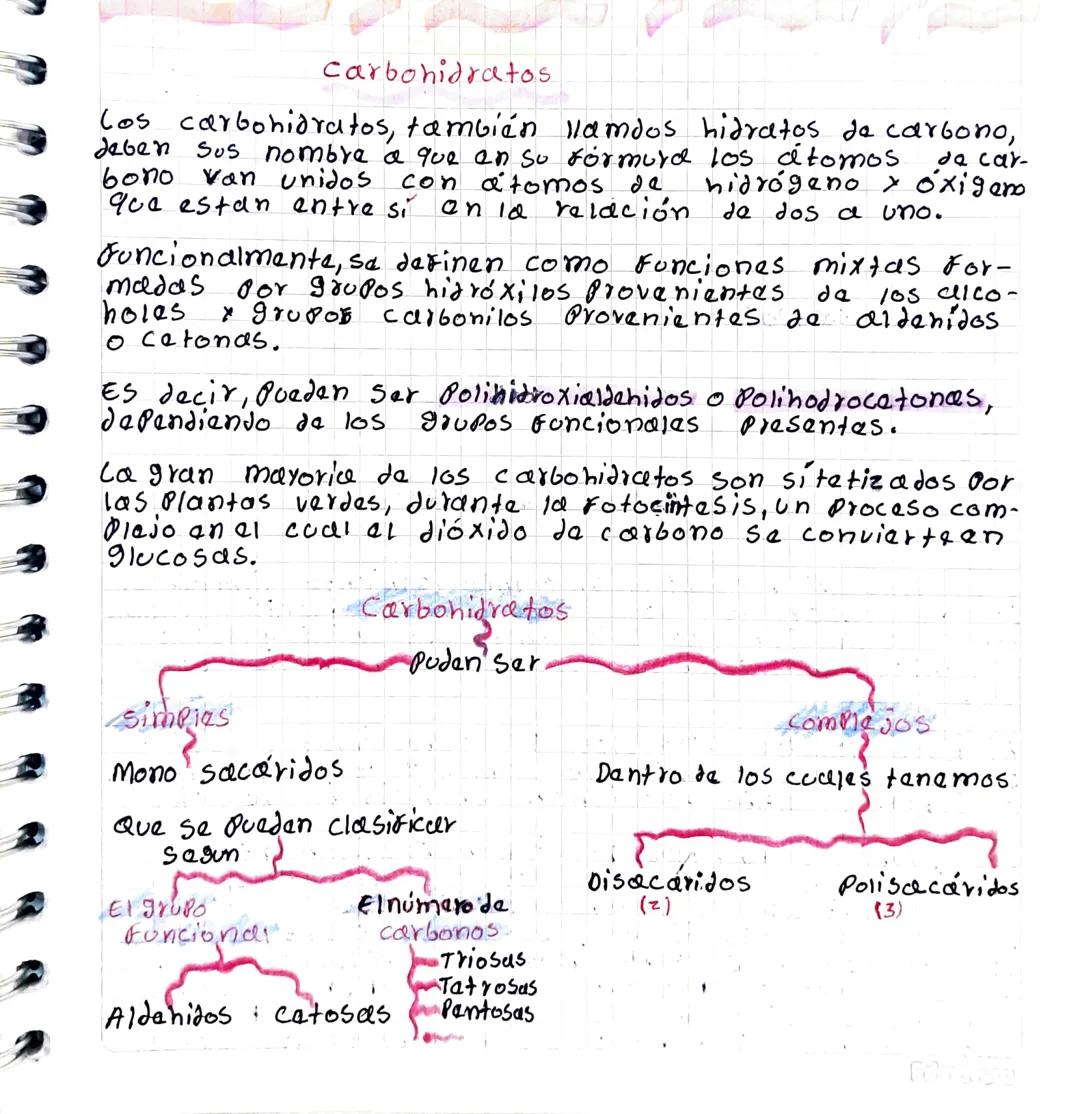 Carbohidratos
Los carbohidratos, también llamdos hidratos de carbono,
deben sus nombre a que en su fórmura los átomos de car-
bono van unidos con átomos de hidrógeno y óxigeno
que estan entre sí en la relación de dos a uno.
Funcionalmente, se definen como funciones mixtas for-
madas por grupos hidróxilos provenientes de los alco-
holes y grupos carbonilos provenientes de aldehidos
o cetonas.
Es decir, pueden ser polihidroxialdehidos o polihodrocetonas,
dependiendo de los grupos funcionales presentes.
La gran mayoria de los carbohidratos son sítetizados por
las plantas verdes, durante la fotocíntesis, un proceso com-
plejo en el cual el dióxido de carbono se convierteen
glucosas.
Carbohidratos
puden ser
simples
complejos
Mono sacáridos
Dentro de los cuales tenemos:
Que se pueden clasificar
segun
Disacáridos
(2)
Polisacáridos
(3)
El grupo
funcional
El número de
carbonos
Aldehidos
cetosas
Triosas
Tetrosas
Pentosas